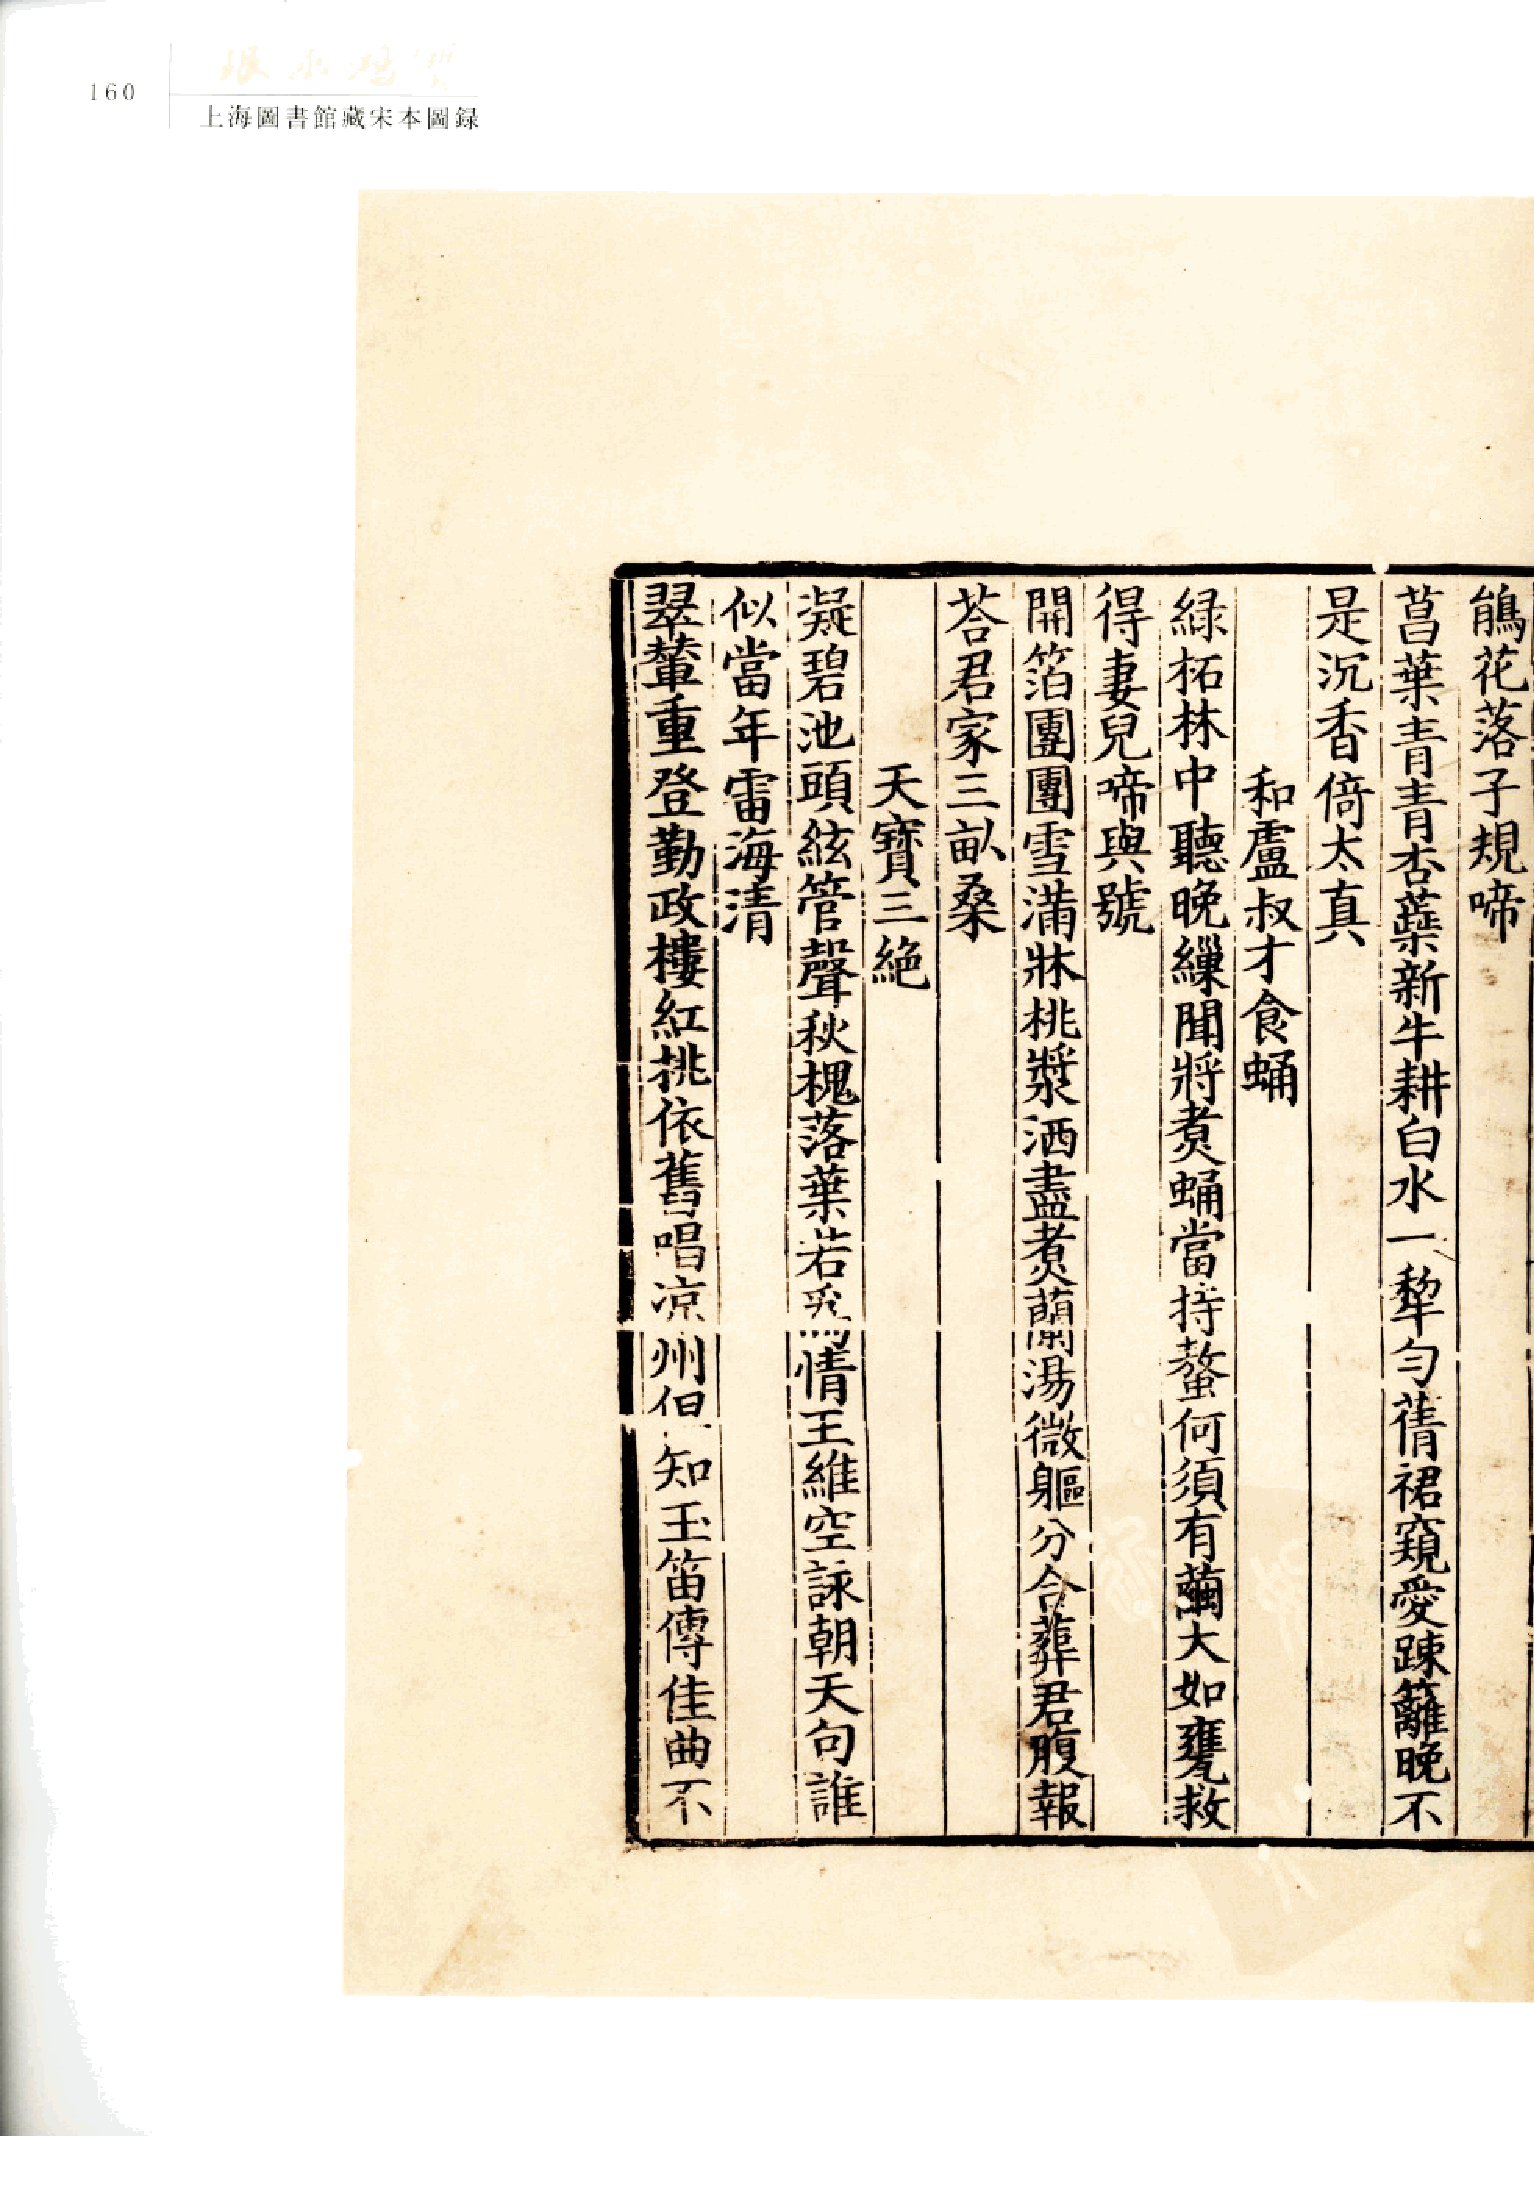 160
上海圖書館藏宋本圖録
鵃花落子規啼
菖葉青青杏蘂新牛耕白水一犂勻蒨裙窺愛踈籬晚不
是沉香倚太真
和盧叔才食蛹
緑柘林中聽晚繅聞將煑蛹當持螯何須有繭大如甕救
得妻兒啼與號
開箔團團雪滿牀桃漿洒盡煑蘭湯微軀分合葬君腹報
荅君家三畝桑
天寶三絶
凝碧池頭絃管聲秋槐落葉若爲情王維空詠朝天句誰
似當年雷海清
翠輦重登勤政樓紅桃依舊唱凉州但知玉笛傳佳曲不